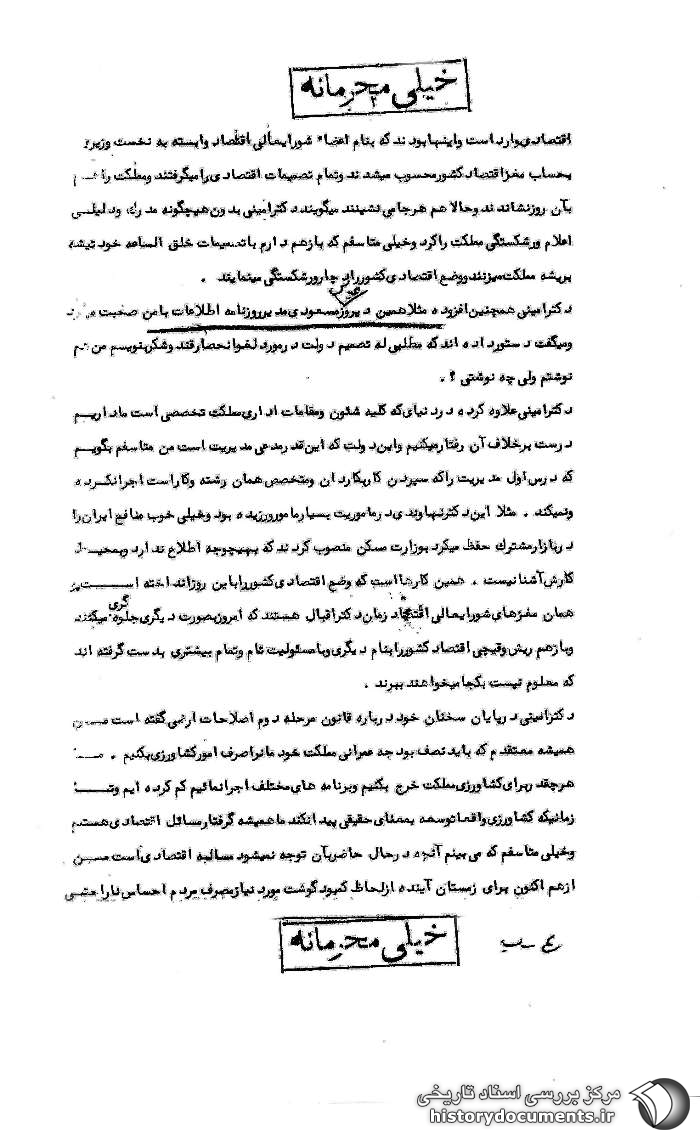 خیلی محرمانه
اقتصادی وارد است و اینها بودند که بنام اعضاء شورایعالی اقتصاد وابسته به نخست وزیر
بحساب مغز اقتصاد کشور محسوب میشدند و تمام تصمیمات اقتصادی را میگرفتند و مملکت را هم
بآن روز نشاندند و حالا هم هر جا می نشینند میگویند دکتر امینی بدون هیچگونه مدرک و دلیلی
اعلام ورشکستگی مملکت را کرد و خیلی متاسفم که بازهم دارم با تصمیمات خلق الساعه خود تیشه
بریشه مملکت میزنند و وضع اقتصادی کشور را دچار ورشکستگی مینمایند .
دکتر امینی همچنین افزوده مثلا همین دیروز مسعودی مدیر روزنامه اطلاعات با من صحبت میکرد
و میگفت دستور داده اند که مطلبی له تصمیم دولت در مورد لغو انحصار قند و شکر بنویسم من هم
نوشتم ولی چه نوشتی ؟ .
دکتر امینی علاوه کرده در دنیای که کلیه شئون و مقامات اداری مملکت تخصصی است ما داریم
درست برخلاف آن رفتار میکنیم و این دولت که این قدر مدعی مدیریت است من متاسفم بگویم
که درس اول مدیریت را که سپردن کار بکاردان و متخصص همان رشته و کار است اجرا نکرده
و نمیکند . مثلا این دکتر نهاوندی در ماموریت بسیار ما مورزیده بود و خیلی خوب منافع ایران را
در بازار مشترک حفظ میکرد بوزارت مسکن منصوب کردند که بهیچوجه اطلاع ندارد و بمحیط
کارش آشنا نیست . همین کارها است که وضع اقتصادی کشور را باین روز انداخته است
همان مغزهای شورایعالی اقتصاد زمان دکتر اقبال هستند که امروز بصورت دیگری جلوه گری میکنند
و بازهم ریش و قیچی اقتصاد کشور را بنام دیگری و با مسئولیت تام و تمام بیشتری بدست گرفته اند
که معلوم نیست بکجا میخواهند ببرند .
دکتر امینی در پایان سخنان خود درباره قانون مرحله دوم اصلاحات ارضی گفته است من
همیشه معتقدم که باید نصف بودجه عمرانی مملکت خود ما نرا صرف امور کشاورزی بکنیم . ما
هر چقدر برای کشاورزی مملکت خرج بکنیم و برنامه های مختلف اجرا نمائیم کم کرده ایم و تا
زمانیکه کشاورزی واقعا توسعه بمعنای حقیقی پیدا نکند ما همیشه گرفتار مسائل اقتصادی هستیم
و خیلی متاسفم که می بینم آنچه در حال حاضر بآن توجه نمیشود مساله اقتصادی است من
از هم اکنون برای زمستان آینده از لحاظ کمبود گوشت مورد نیاز مصرف مردم احساس ناراحتی
خیلی محرمانه
مرکز بررسی اسناد تاریخی
historydocuments.ir